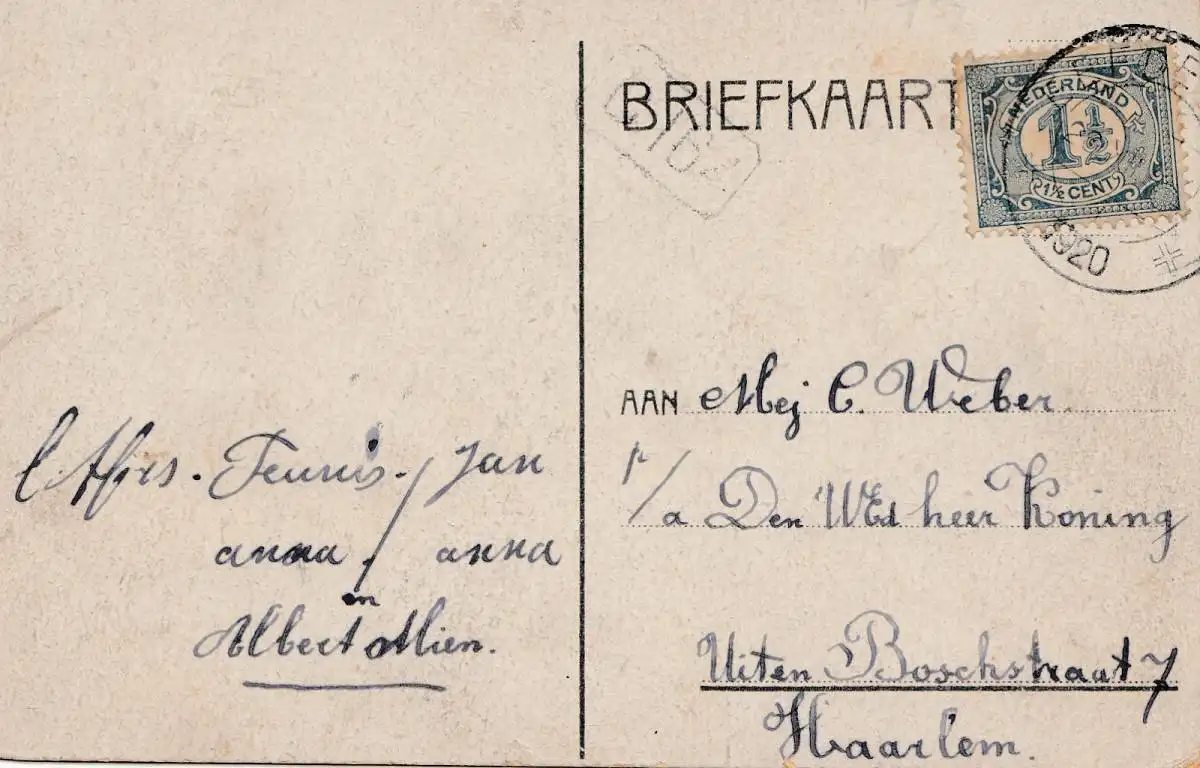 BRIEFKAART
NEDERLAND
1½
1½ CENT
1920
AAN Mej C. Weber.
p/a Den WEd heer Koning
Uiten Boschstraat 7
Haarlem.
Afrs. Teunis. / Jan
anna. / anna
en
Albert Mien.